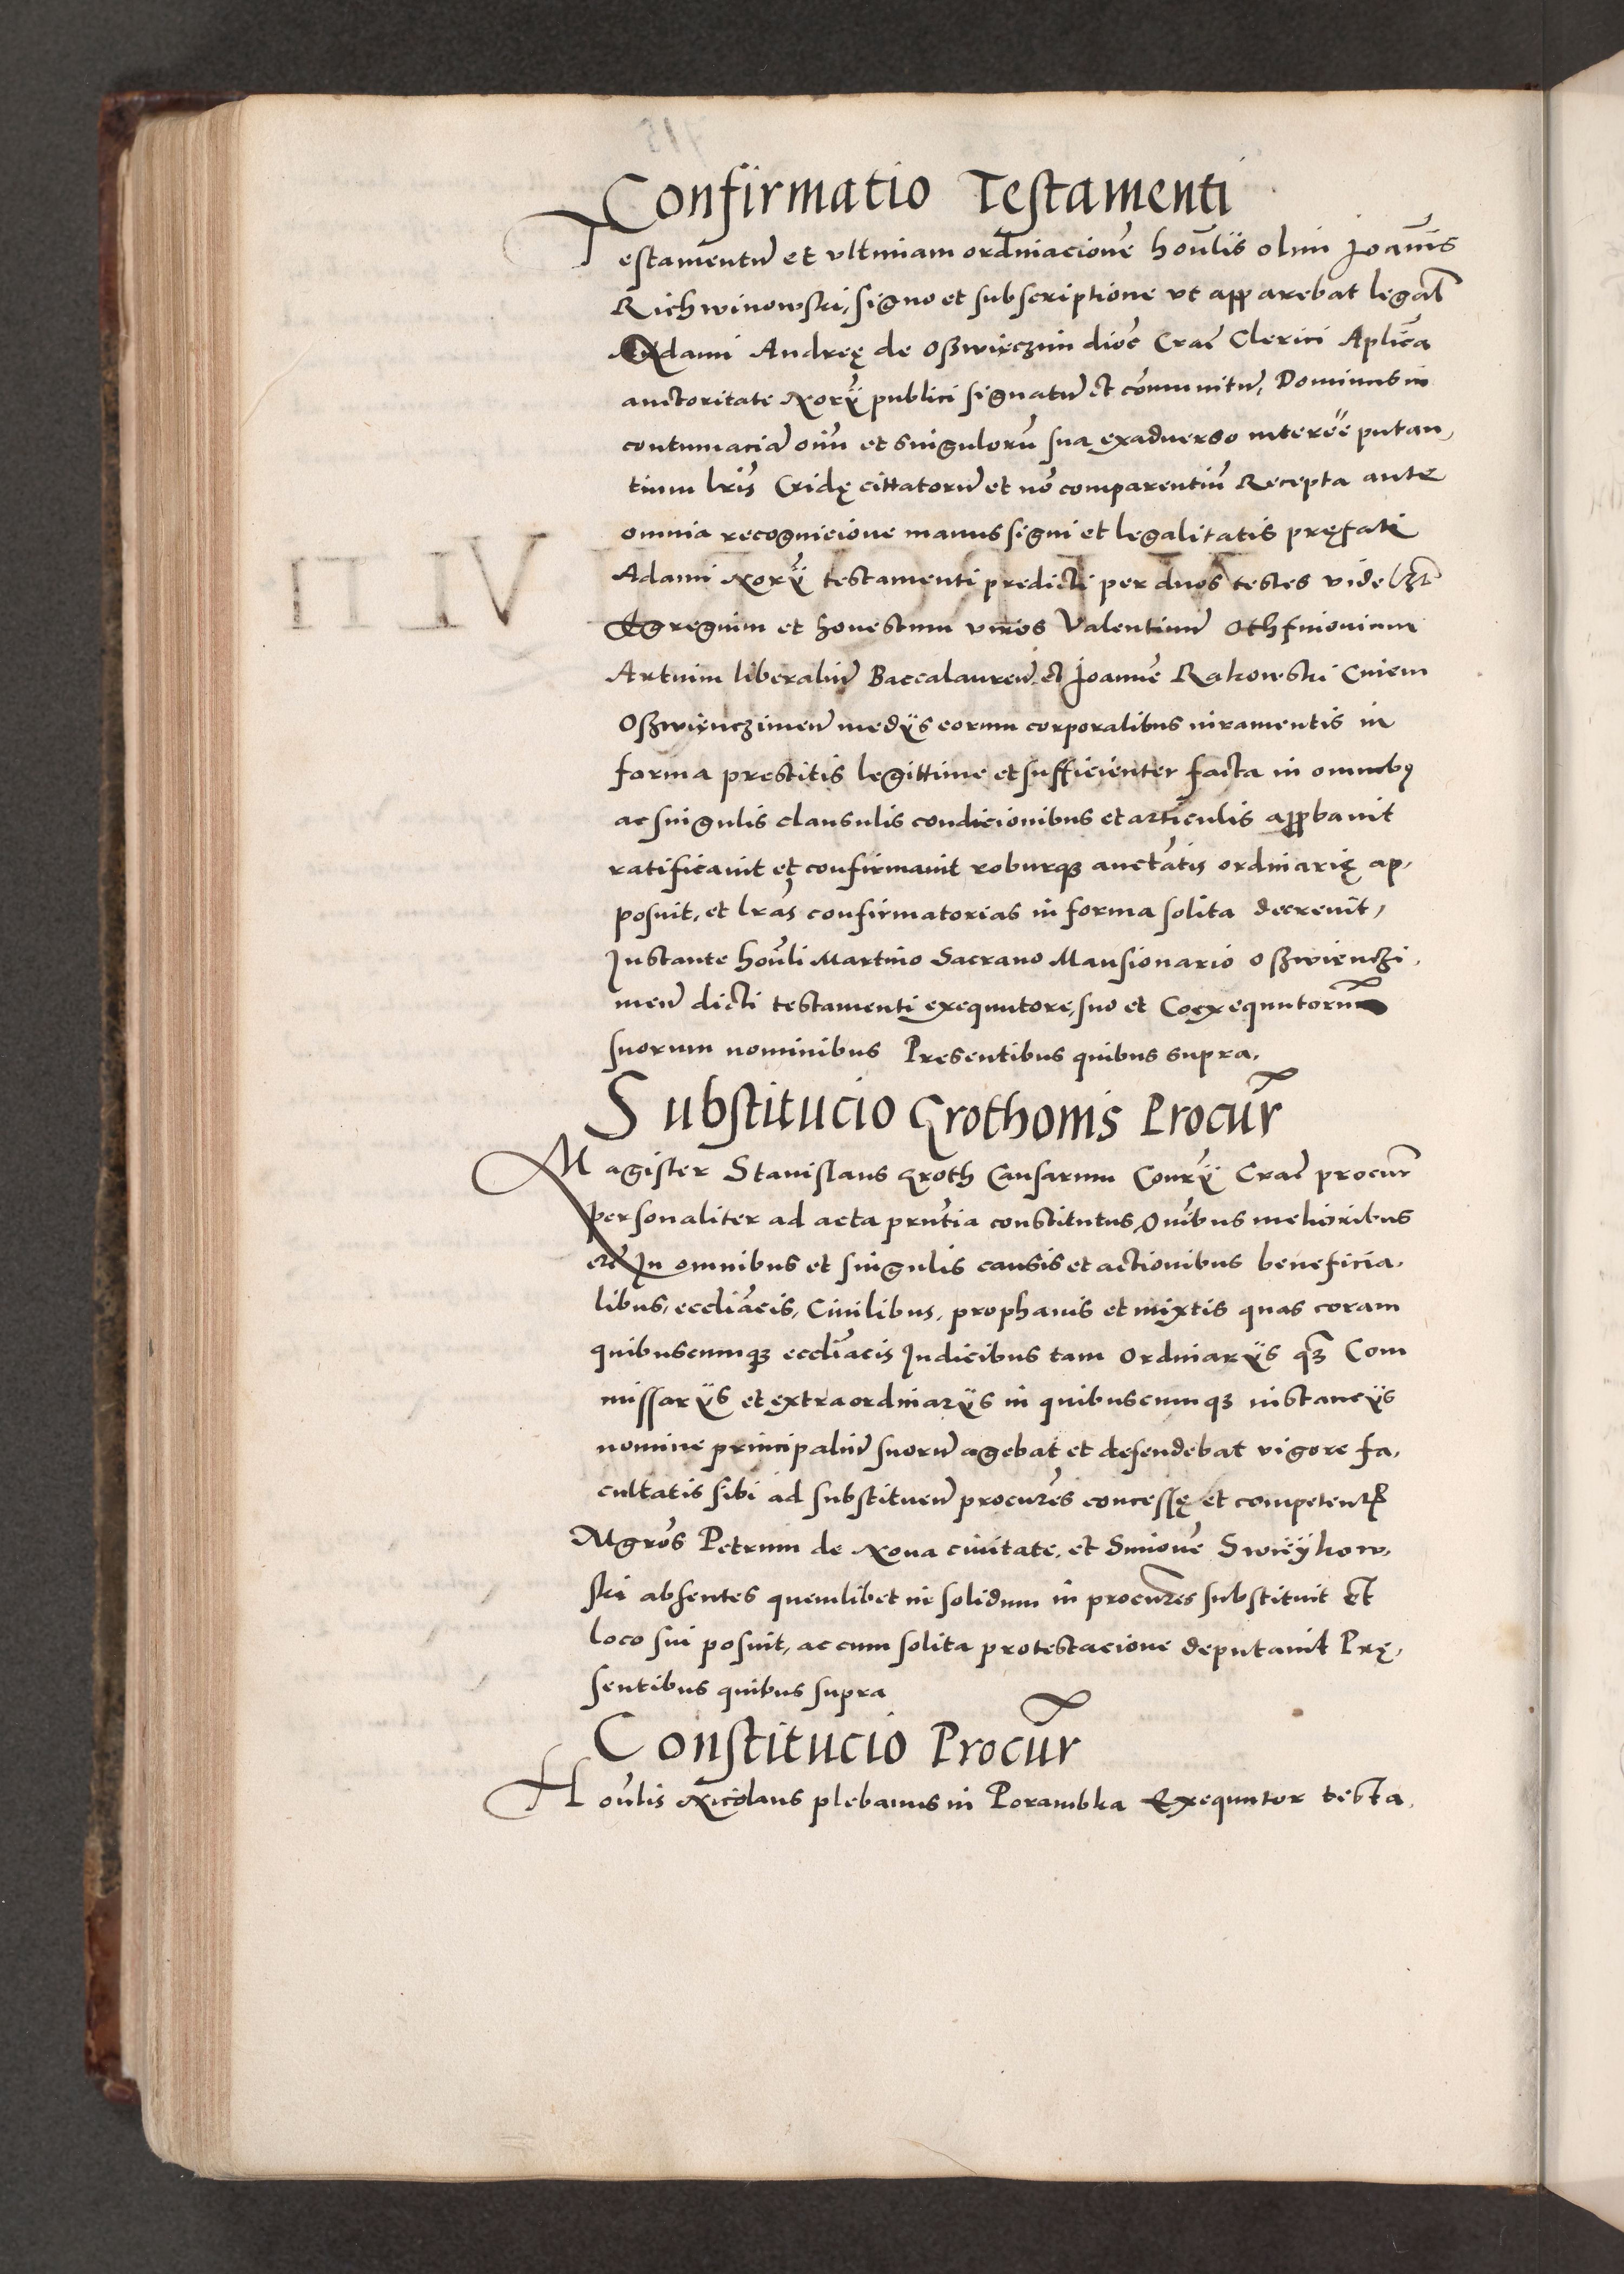 Confirmatio Testamenti
Testamentū et vltimam ordinacionē honūlis olim Joannis
Richwinowski, signo et subscriptione vt apparebat legal
Adami Andreę de Oszwięczim dioc Crac Clerici Aplica
auctoritate Norÿ publici signatū et cōmunitū, Dominus in
contumaciā oīm et singulorū sua exaduerso interēē putan,
tium lrīs Cridę cittatorū et nō comparentiū Recepta ante
omnia recognicione manus signi et legalitatis pręfati
Adami Norÿ testamenti predicti per duos testes videlzt
Egregium et honestum viros Valentinū Othfinioviam
Artium liberaliū Baccalaureū et Joannē Rakowski Ciuem
Oszwięnczimeñ medÿs eorum corporalibus iuramentis in
forma prestitis legittime et sufficienter facta in omnibꝰ
ac singulis clausulis condicionibus et articulis approbauit
ratificauit et confirmauit roburqꝫ auctātis ordinarię ap,
posuit, et lrās confirmatorias in forma solita decreuit,
Instante honūli Martino Sacrano Mansionario Oszwięnczi,
meñ dicti testamenti exequutore, suo et Coexequutorum
suorum nominibus Presentibus quibus supra.
Substitucio Grothonis Procur̄
Magister Stanislaus Groth Causarum Conrÿ Crac procur̄
personaliter ad acta prñtia constitutus, Oñibus melioribus
etc̄ In omnibus et singulis causis et actionibus beneficia,
libus, eccliācis, Ciuilibus, prophanis et mixtis quas coram
quibuscumqꝫ eccliācis Judicibus tam Ordinarÿs qꝫ Com
missarÿs et extraordinarÿs in quibuscumqꝫ instancÿs
nomine principaliū suorū agebat et defendebat vigore fa,
cultatis sibi ad substitueñ procurēs concessę et competentꝭ
Mgrōs Petrum de Noua ciuitate, et Simonē Swięÿkow,
ski absentes quemlibet in solidum in procurēs substituit Et
loco sui posuit, ac cum solita protestacione deputauit Prę,
sentibus quibus supra
Constitucio Procur̄
Honūlis Nicolaus plebanus in Porambka Exequutor testa,